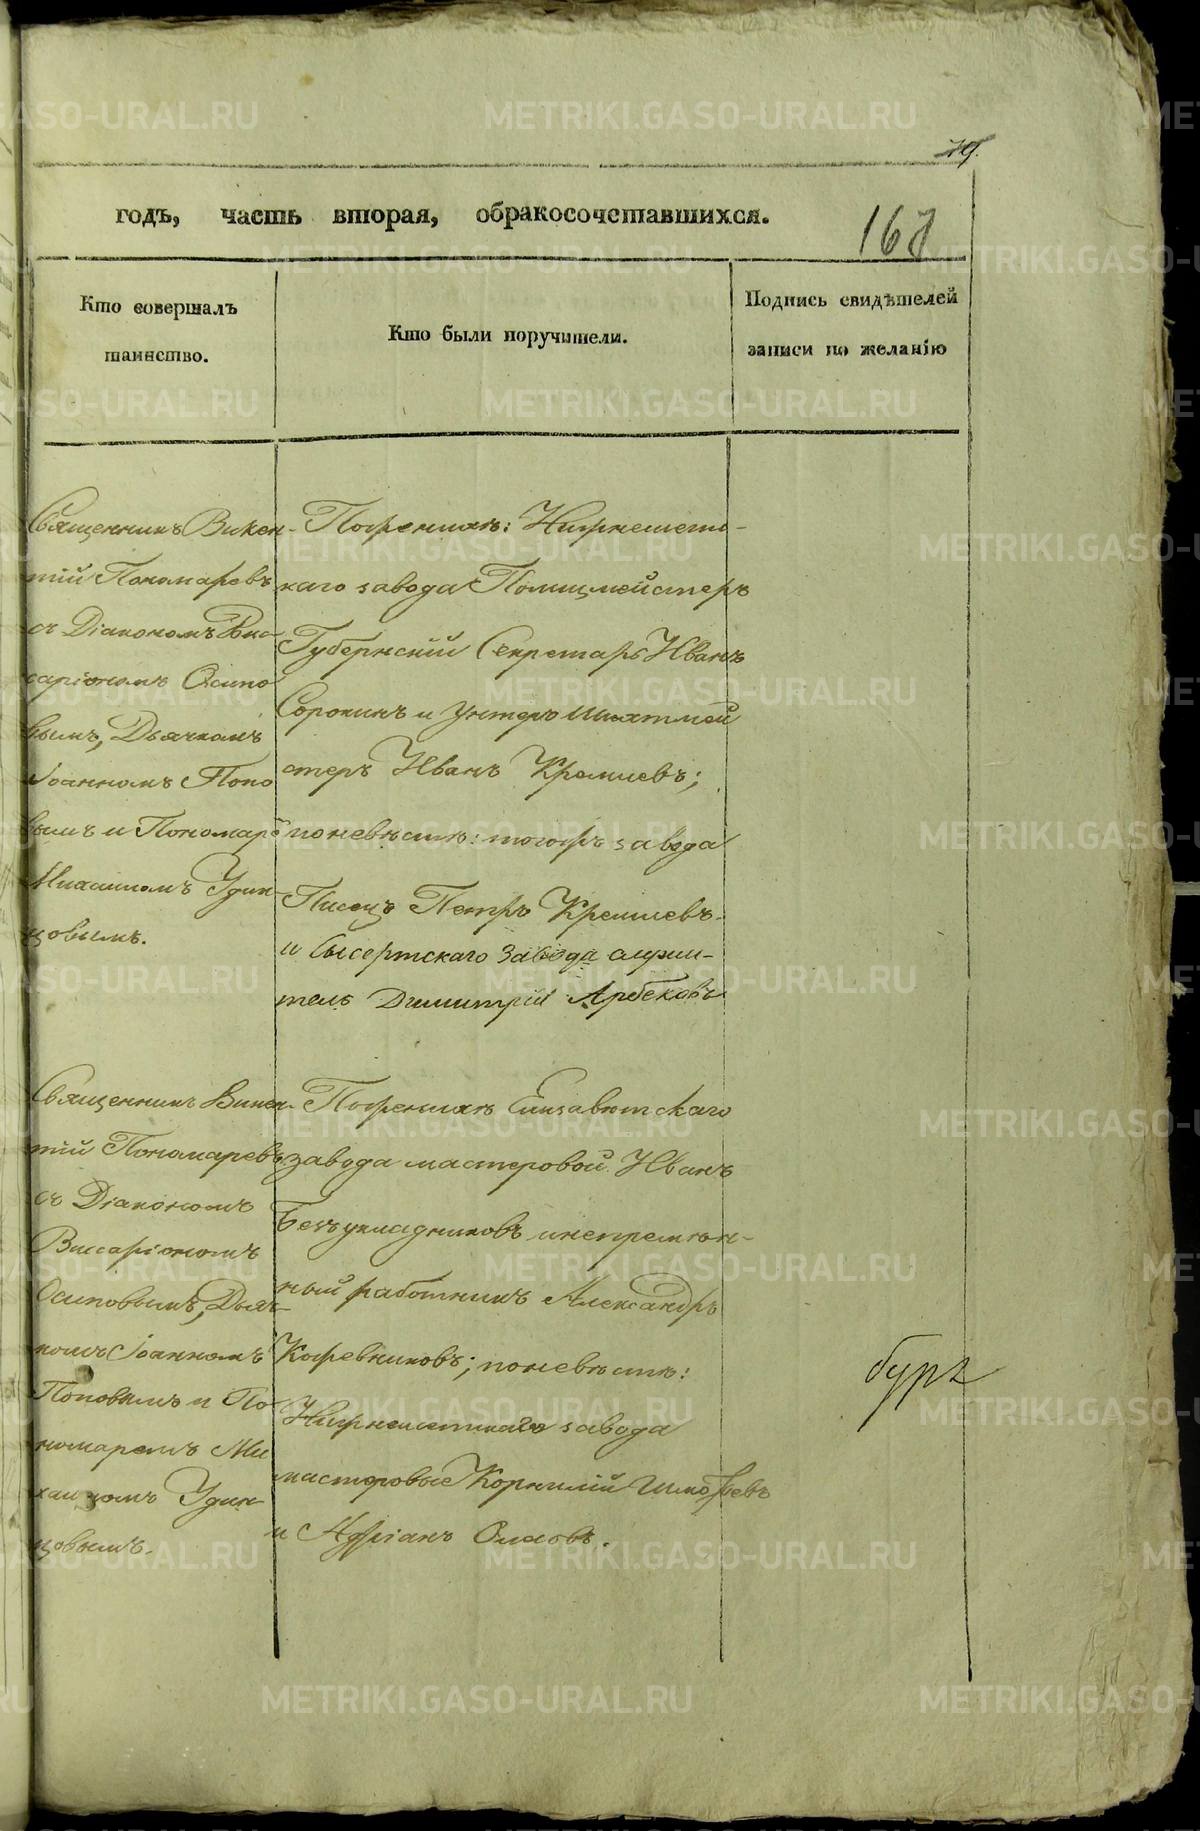 79.
годъ, часть вторая, обракосочетавшихся.
168
Кто совершалъ
таинство.
Кто были поручители.
Подпись свидѣтелей
записи по желанію
Священникъ Викен-
тій Пономаревъ
съ Діакономъ Вис-
саріономъ Осипо
вымъ, Дьячкомъ
Іоанномъ Попо
вымъ и Пономаре
Михаиломъ Удин-
цовымъ.
Поженихѣ: Нижнеисет-
каго завода Полицмейстеръ
Губернскій Секретарь Иванъ
Сорокинъ и Унтеръ Шихтмей
стеръ Иванъ Кремлевъ;
поневѣстѣ: тогожъ завода
Писецъ Петръ Кремлевъ
и Сысертскаго Завода служи-
тель Димитрій Арбековъ
Священникъ Викен-
тій Пономаревъ
съ Діакономъ
Виссаріономъ
Осиповымъ, Дьяч-
комъ Іоанномъ
Поповымъ и По
номаремъ Ми
хаиломъ Удин-
цовымъ.
Поженихѣ Елисаветскаго
завода мастеровой Иванъ
Безукладниковъ инепремѣн-
ный работникъ Александръ
Кожевниковъ; поневѣстѣ:
Нижнеисеткаго завода
мастеровые Корнилій
и Адріанъ
METRIKI.GASO-URAL.RU